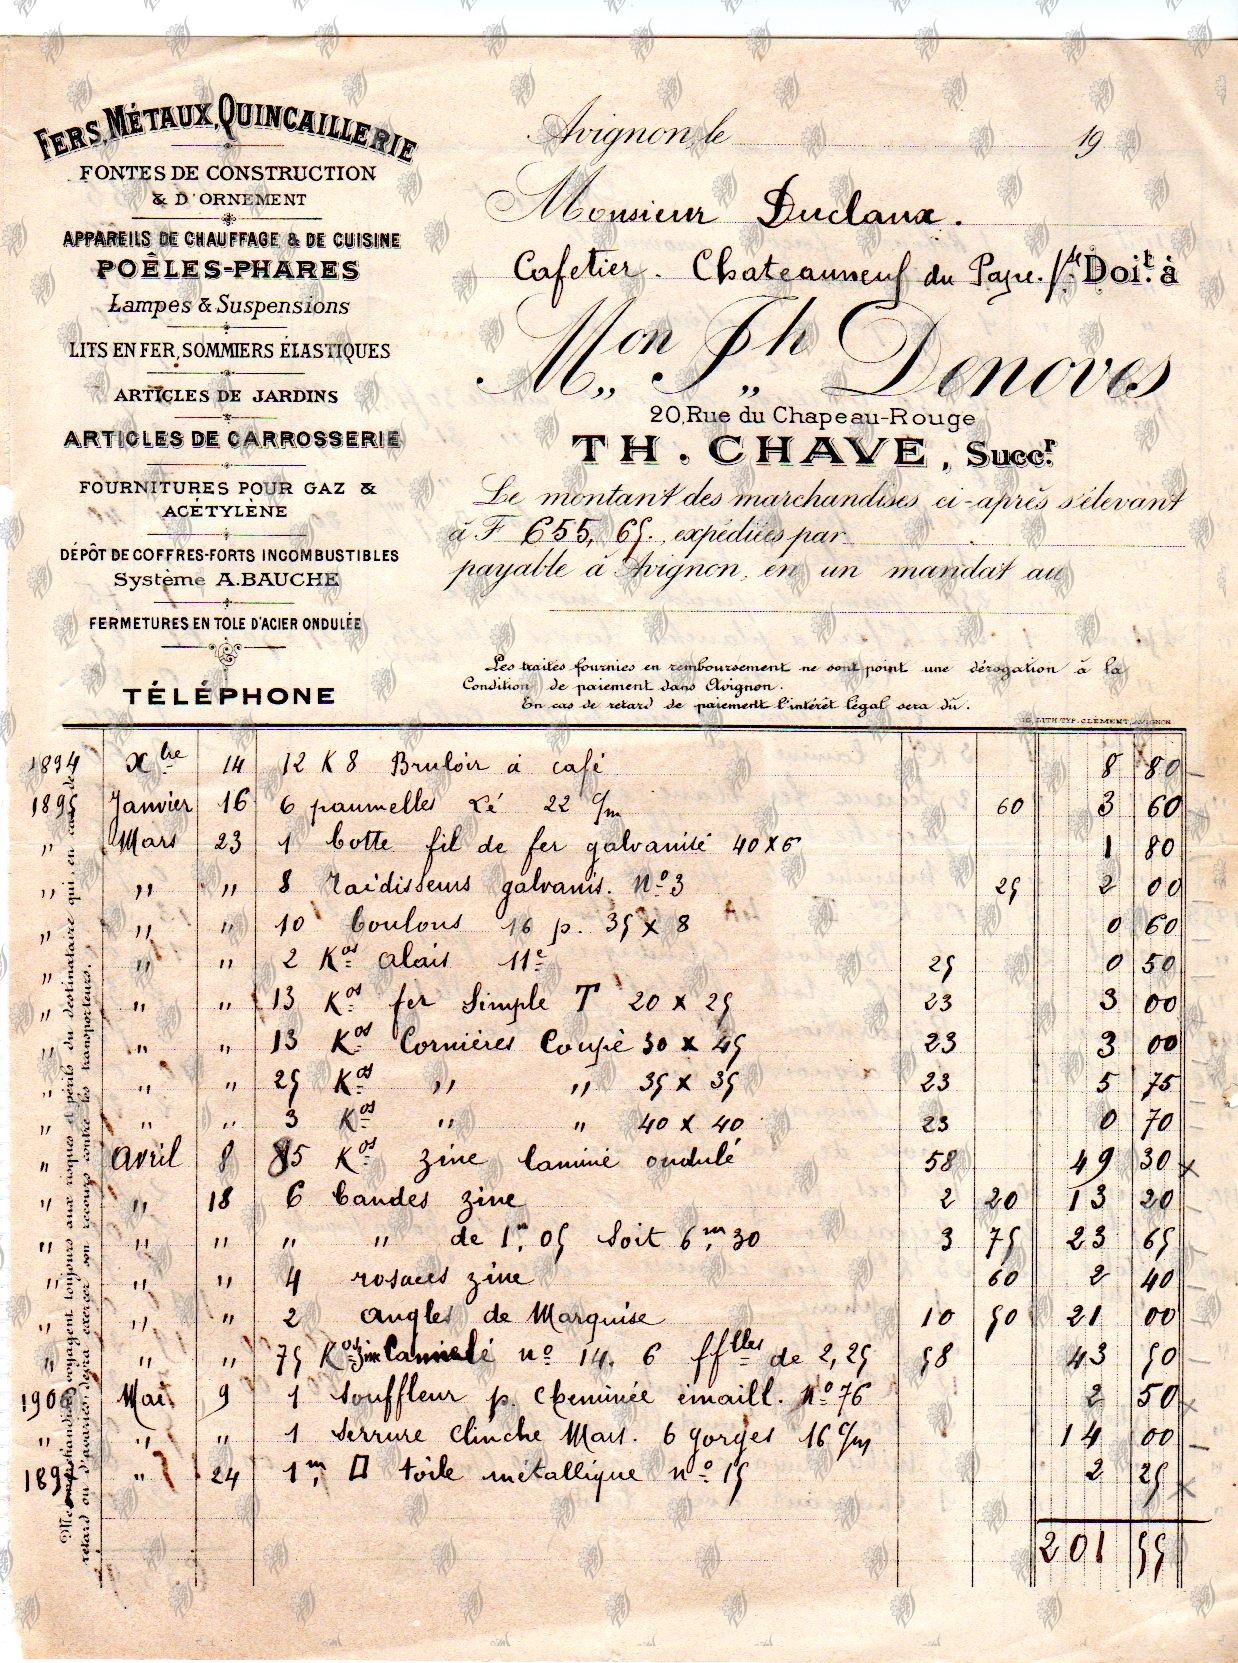 FERS, MÉTAUX, QUINCAILLERIE
FONTES DE CONSTRUCTION
& D'ORNEMENT
APPAREILS DE CHAUFFAGE & DE CUISINE
POÊLES-PHARES
Lampes & Suspensions
LITS EN FER, SOMMIERS ÉLASTIQUES
ARTICLES DE JARDINS
ARTICLES DE CARROSSERIE
FOURNITURES POUR GAZ &
ACÉTYLÈNE
DÉPÔT DE COFFRES-FORTS INCOMBUSTIBLES
Système A. BAUCHE
FERMETURES EN TOLE D'ACIER ONDULÉE
TÉLÉPHONE
Avignon, le 19
Monsieur Duclaux.
Cafetier. Chateauneuf du Pape. Doit à
Mon Jh Denoves
20, Rue du Chapeau-Rouge
TH. CHAVE, Succr.
Le montant des marchandises ci-après s'élevant
à F 655, 65. expédiées par
payable à Avignon, en un mandat au
Les traites fournies en remboursement ne sont point une dérogation à la
Condition de paiement dans Avignon.
En cas de retard de paiement l'intérêt légal sera dû.
LITH. TYP. CLÉMENT, AVIGNON
1894 Xbre 14 12 K 8 Bruloir à café 8 80
1895 Janvier 16 6 paumelles 22 c/m 60 3 60
" Mars 23 1 botte fil de fer galvanisé 40 x 6 1 80
" " " 8 raidisseurs galvanis. No 3 25 2 00
" " " 10 boulons 16 p. 35 x 8 0 60
" " " 2 Kos alais 11e 25 0 50
" " " 13 Kos fer Simple T 20 x 25 23 3 00
" " " 13 Kos Cornières Coupè 30 x 45 23 3 00
" " " 25 Kos " " 35 x 35 23 5 75
" " " 3 Kos " " 40 x 40 23 0 70
" Avril 8 85 Kos zinc laminé ondulé 58 49 30
" " 18 6 bandes zinc 2 20 13 20
" " " " " de 1m, 05 Soit 6m, 30 3 75 23 65
" " " 4 rosaces zinc 60 2 40
" " " 2 angles de Marquise 10 50 21 00
" " " 75 Kos zinc no 14. 6 fflles de 2,25 58 43 50
190 Mai 9 1 Souffleur p. Cheminée émaill. No 76 2 50
" " " 1 Serrure Clinche Mars. 6 gorges 16 c/m 14 00
189 " 24 1m, □ toile métallique no 15 2 25
201 55
voyagent toujours aux risques et périls du destinataire qui, en cas de
retard ou d'avaries devra exercer son recours contre les transporteurs.